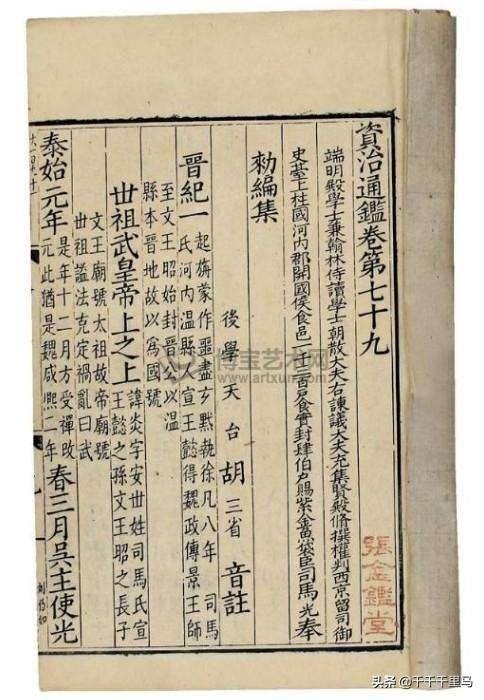 資治通鑑卷第七十九
端明殿學士兼翰林侍讀學士朝散大夫右諫議大夫充集賢殿脩撰權判西京留司御
史臺上柱國河內郡開國侯食邑一千三百戶食實封肆伯戶賜紫金魚袋臣司馬光奉
勑編集
後學天台胡三省音註
晉紀一
起旃蒙作噩盡玄黓執徐凡八年 司馬
氏河內溫縣人宣王懿得魏政傳景王師
至文王昭始封晉公以溫
縣本晉地故以為國號
世祖武皇帝上之上
諱炎字安世姓司馬氏宣
王懿之孫文王昭之長子
文王廟號太祖故帝廟號
世祖諡法克定禍亂曰武
泰始元年
是年十二月方受禪改
元此猶是魏咸熙二年
春三月吳主使光
張金鑑堂
博宝艺术网
www.artxun.com
头条@千千千里马